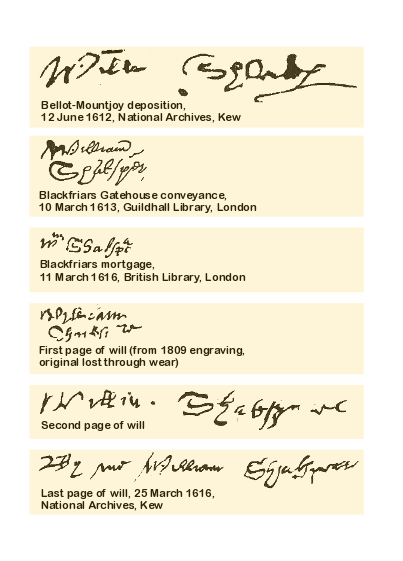 Willm Shakp
Bellot-Mountjoy deposition,
12 June 1612, National Archives, Kew
William
Shaksper
Blackfriars Gatehouse conveyance,
10 March 1613, Guildhall Library, London
Wm Shakspe
Blackfriars mortgage,
11 March 1616, British Library, London
William
Shakspere
First page of will (from 1809 engraving,
original lost through wear)
Willm Shakspere
Second page of will
By me William Shakspeare
Last page of will, 25 March 1616,
National Archives, Kew